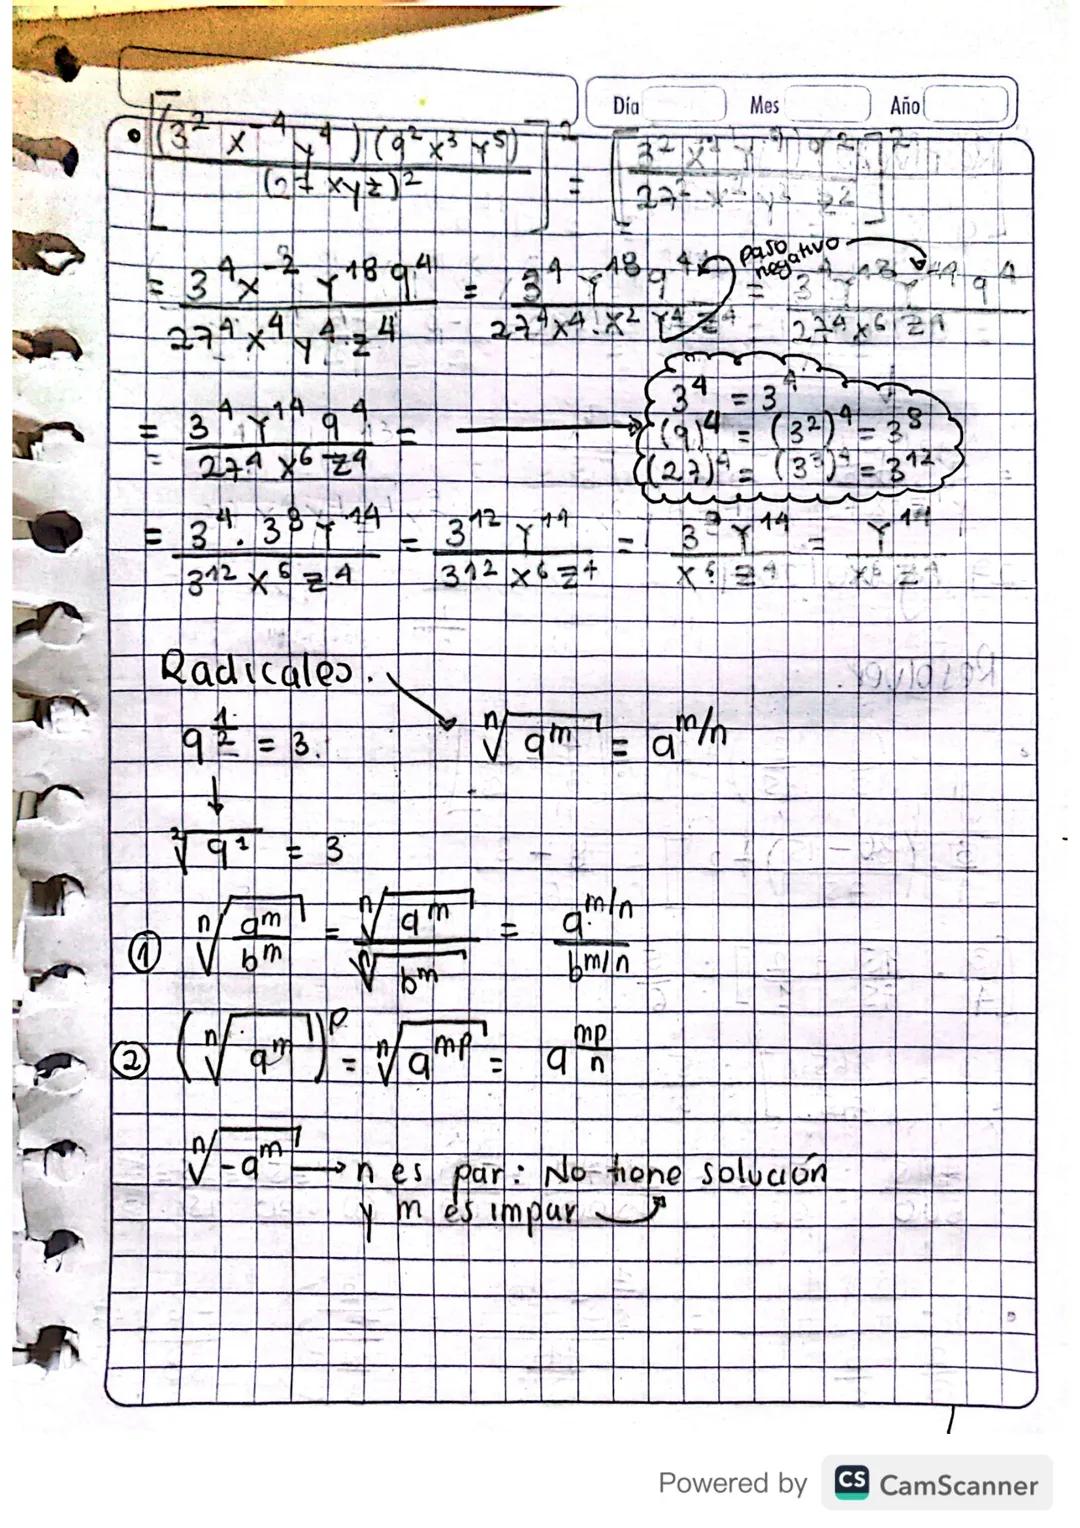 Día Mes Año
• [(3² x⁻⁴ y⁴)(9² x³ y⁵) / (27 xyz)²]² = [3² x⁻¹ y⁹ 9² / 27² x² y² z²]²
= 3⁴ x⁻² y¹⁸ 9⁴ / 27⁴ x⁴ y⁴ z⁴ = 3⁴ y¹⁸ 9⁴ / 27⁴ x⁴ · x² y⁴ z⁴ = 3⁴ y¹⁸ y⁻⁴ 9⁴ / 27⁴ x⁶ z⁴
paso negativo
= 3⁴ y¹⁴ 9⁴ / 27⁴ x⁶ z⁴ = →
3⁴ = 3⁴
(9)⁴ = (3²)⁴ = 3⁸
(27)⁴ = (3³)⁴ = 3¹²
= 3⁴ · 3⁸ y¹⁴ / 3¹² x⁶ z⁴ = 3¹² y¹⁴ / 3¹² x⁶ z⁴ = 3⁰ y¹⁴ / x⁶ z⁴ = y¹⁴ / x⁶ z⁴
Radicales.
9^(1/2) = 3. ⁿ√(a^m) = a^(m/n)
↓
²√(9¹) = 3
① ⁿ√(a^m / b^m) = ⁿ√(a^m) / ⁿ√(b^m) = a^(m/n) / b^(m/n)
② (ⁿ√(a^m))^p = ⁿ√(a^(mp)) = a^(mp/n)
ⁿ√(-a^m) → n es par: No tiene solución
y m es impar
Powered by CS CamScanner